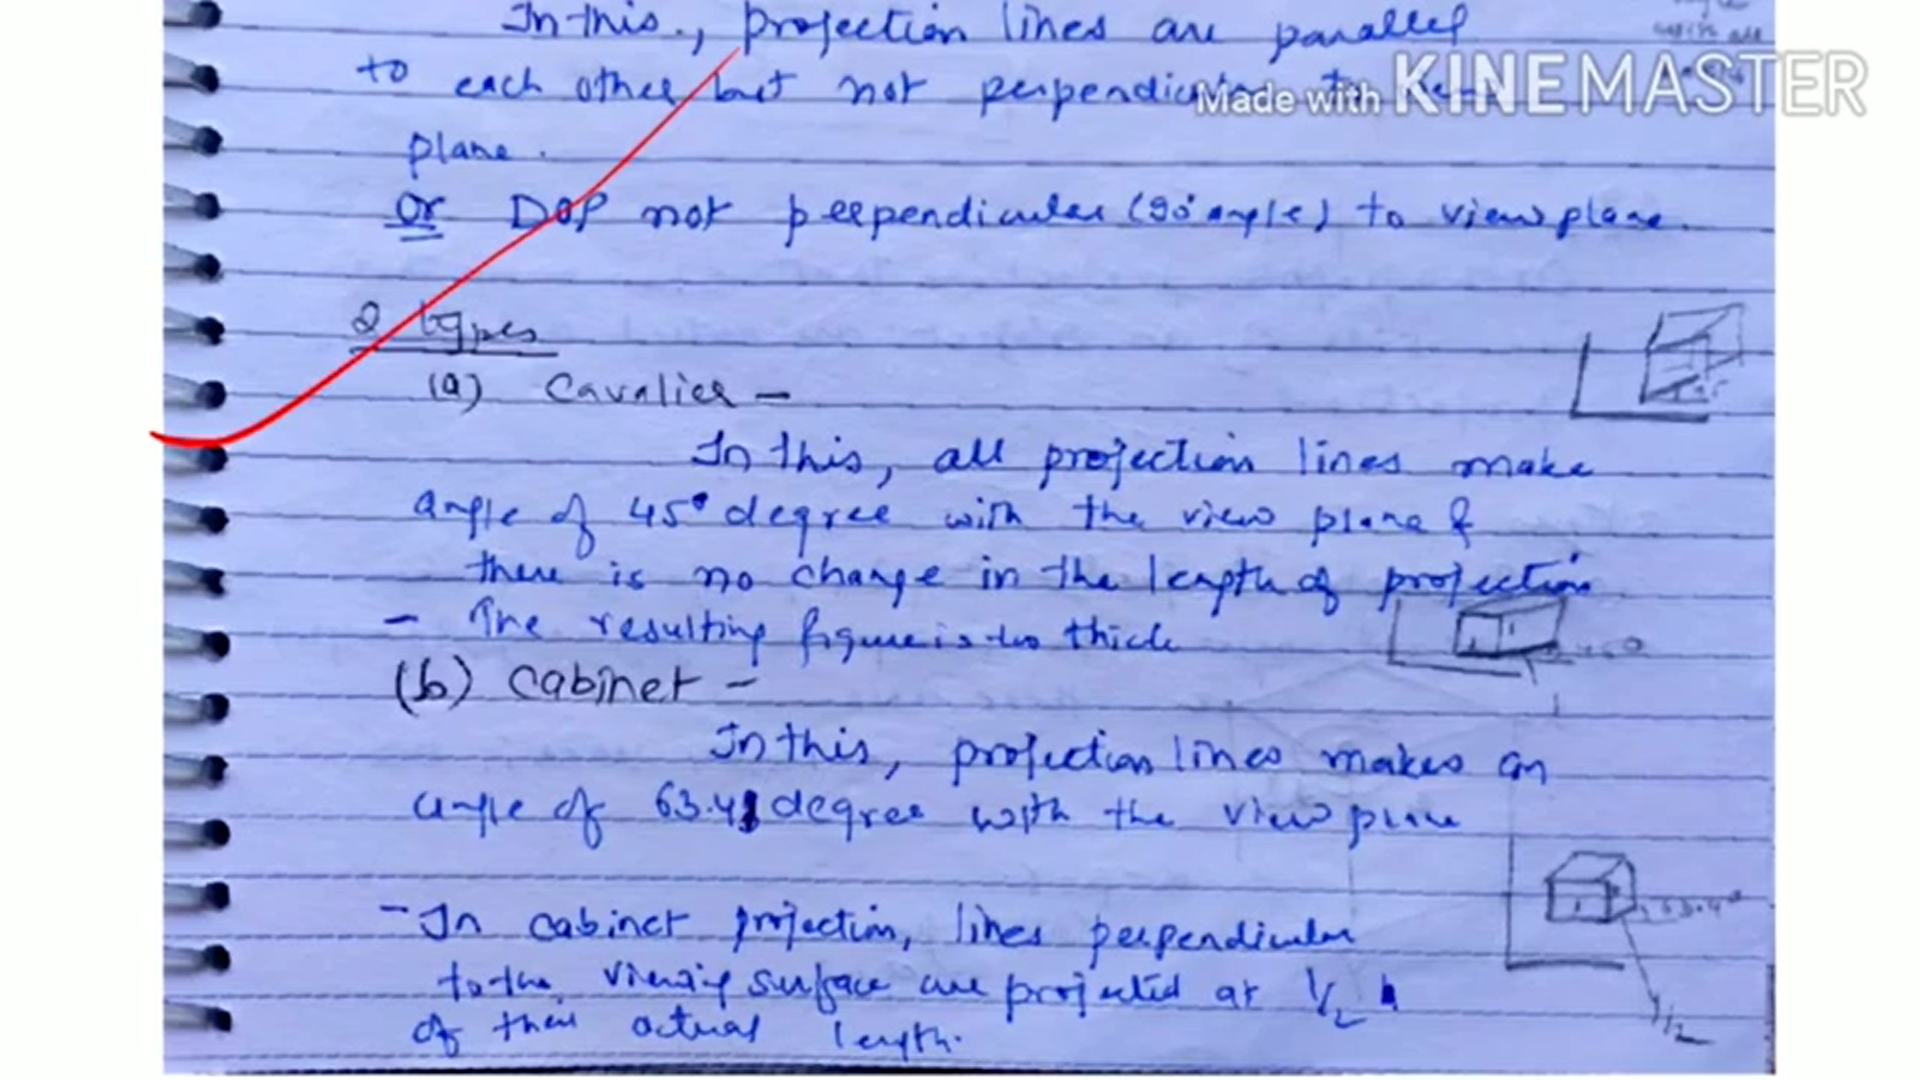 In this., projection lines are parallel
to each other but not perpendicular to
plane.
Or DOP not perpendicular (90° angle) to view plane.
Made with KINEMASTER
2 types
(a) Cavalier -
In this, all projection lines make
angle of 45° degree with the view plane &
there is no change in the length of projection
- The resulting figure is too thick
(b) Cabinet -
In this, projection lines makes an
angle of 63.4 degree with the view plane
63.4°
- In cabinet projection, lines perpendicular
to the viewing surface are projected at 1/2
of their actual length.
1/2